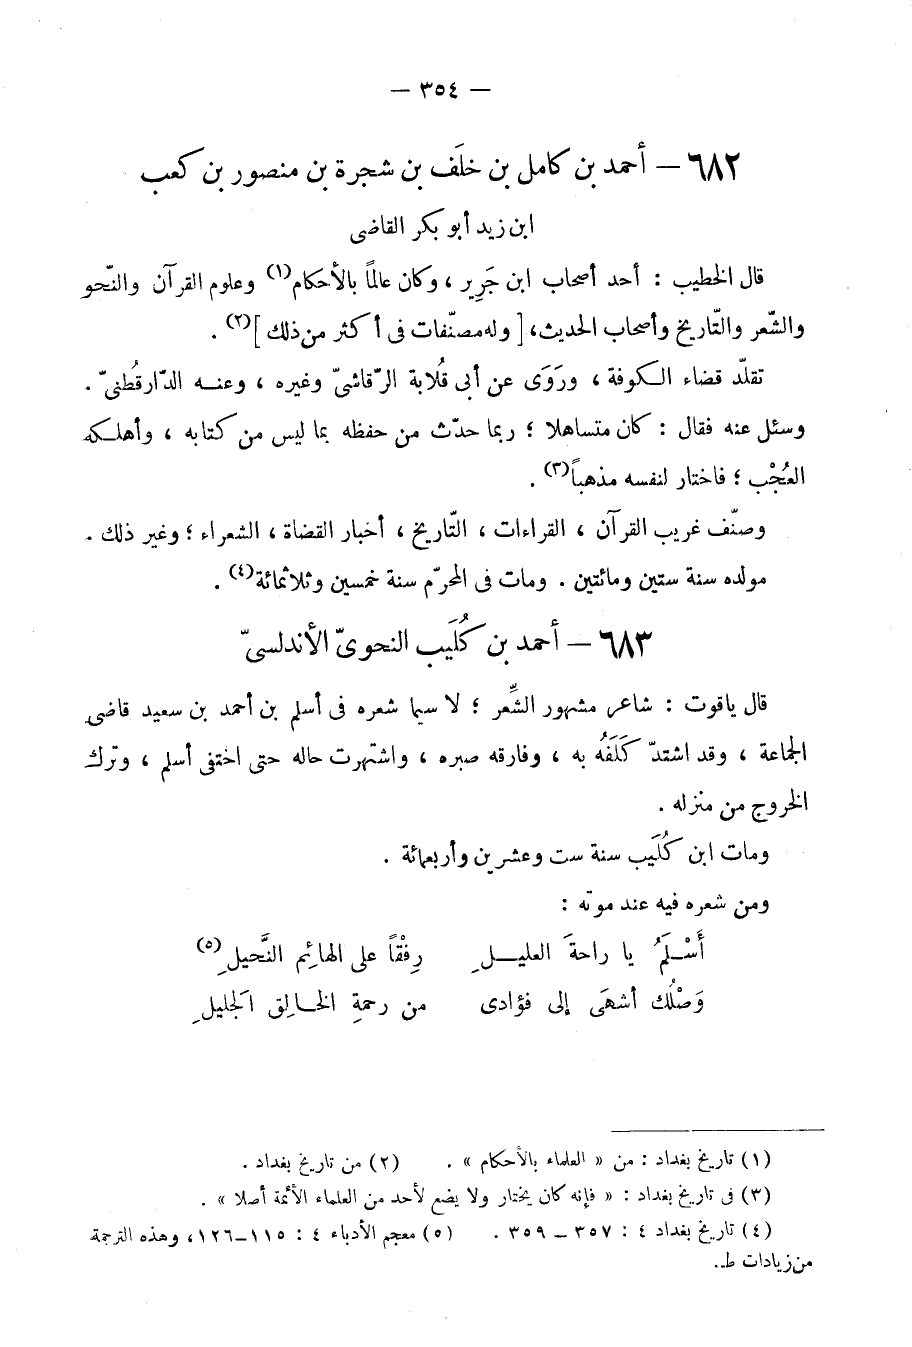 — ٣٥٤ —
٦٨٢ — أحمد بن كامل بن خلَف بن شجرة بن منصور بن كعب
ابن زيد أبو بكر القاضى
قال الخطيب : أحد أصحاب ابن جَرِير ، وكان عالمًا بالأحكام(١) وعلوم القرآن والنّحو
والشّعر والتّاريخ وأصحاب الحديث، [ وله مصنّفات فى أكثر من ذلك ](٢) .
تقلّد قضاء الكوفة ، ورَوَى عن أبى قُلابة الرّقاشىّ وغيره ، وعنه الدّارقُطنىّ .
وسئل عنه فقال : كان متساهلا ؛ ربما حدّث من حفظه بما ليس من كتابه ، وأهلكه
العُجْب ؛ فاختار لنفسه مذهباً(٣) .
وصنّف غريب القرآن ، القراءات ، التّاريخ ، أخبار القضاة ، الشعراء ؛ وغير ذلك .
مولده سنة ستين ومائتين . ومات فى المحرّم سنة خمسين وثلاثمائة(٤) .
٦٨٣ — أحمد بن كُلَيب النحوىّ الأندلسىّ
قال ياقوت : شاعر مشهور الشِّعر ؛ لا سيما شعره فى أسلم بن أحمد بن سعيد قاضى
الجماعة ، وقد اشتدّ كَلَفُه به ، وفارقه صبره ، واشتهرت حاله حتى اختفى أسلم ، وترك
الخروج من منزله .
ومات ابن كُلَيب سنة ست وعشرين وأربعمائة .
ومن شعره فيه عند موته :
أَسْلَمُ يا راحةَ العليلِ رِفْقاً على الهائِم النَّحيلِ(٥)
وَصْلُك أشهَى إلى فؤادى من رحمةِ الخالِق الجليلِ
(١) تاريخ بغداد : من « العلماء بالأحكام » . (٢) من تاريخ بغداد .
(٣) فى تاريخ بغداد : « فإنه كان يختار ولا يضع لأحد من العلماء الأئمة أصلا » .
(٤) تاريخ بغداد ٤ : ٣٥٧ — ٣٥٩ . (٥) معجم الأدباء ٤ : ١١٥—١٢٦، وهذه الترجمة
من زيادات ط..